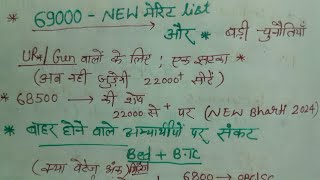 * → 69000 - NEW मेरिट list
और * बड़ी चुनौतियाँ
UR/Gen वालों के लिए ; एक झटका
(अब नहीं जुड़ेंगी 22000+ सीटें)
* 68500 → की शेष 22000 से + पर (NEW Bharti 2024)
* बाहर होने वाले अभ्यार्थीयों पर संकट
Bed + BTC
6800 → OBC/SC